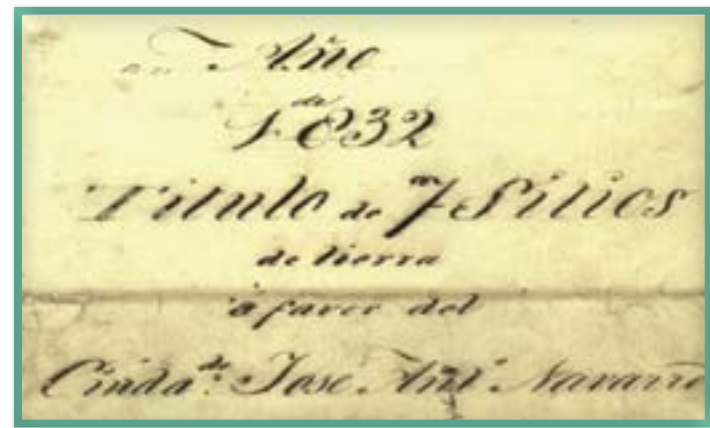 Año
de
1832
Titulo de 7 Sitios
de tierra
á favor del
Ciuda.ⁿᵒ José Ant.º Navarro